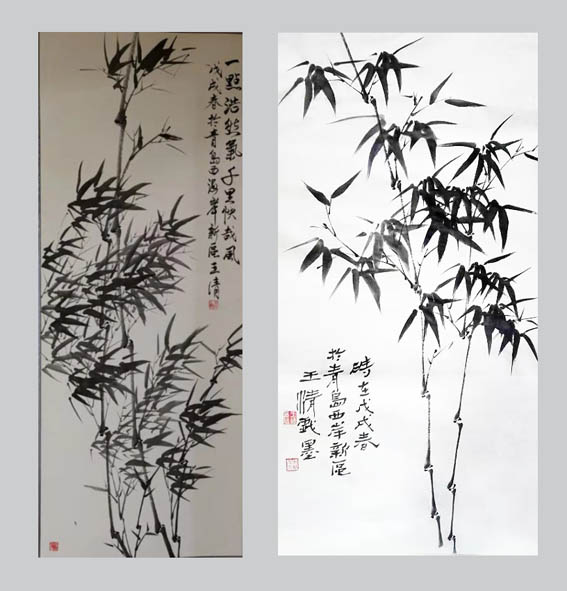 一點浩然氣千里快哉風
戊戌春於青島西海岸新區王清
時在戊戌春
於青島西岸新區
王清戲墨